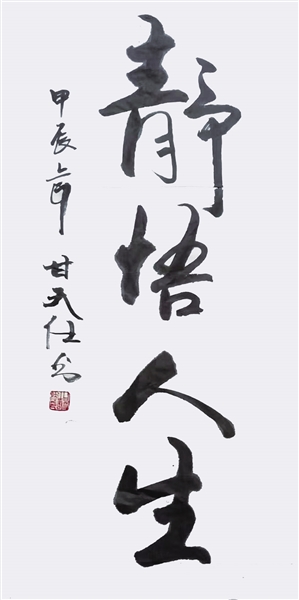 静悟人生
甲辰年 甘天仕书